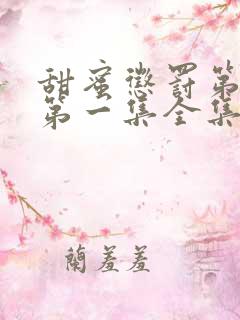 甜蜜惩罚第
第一集全集
蘭羞羞